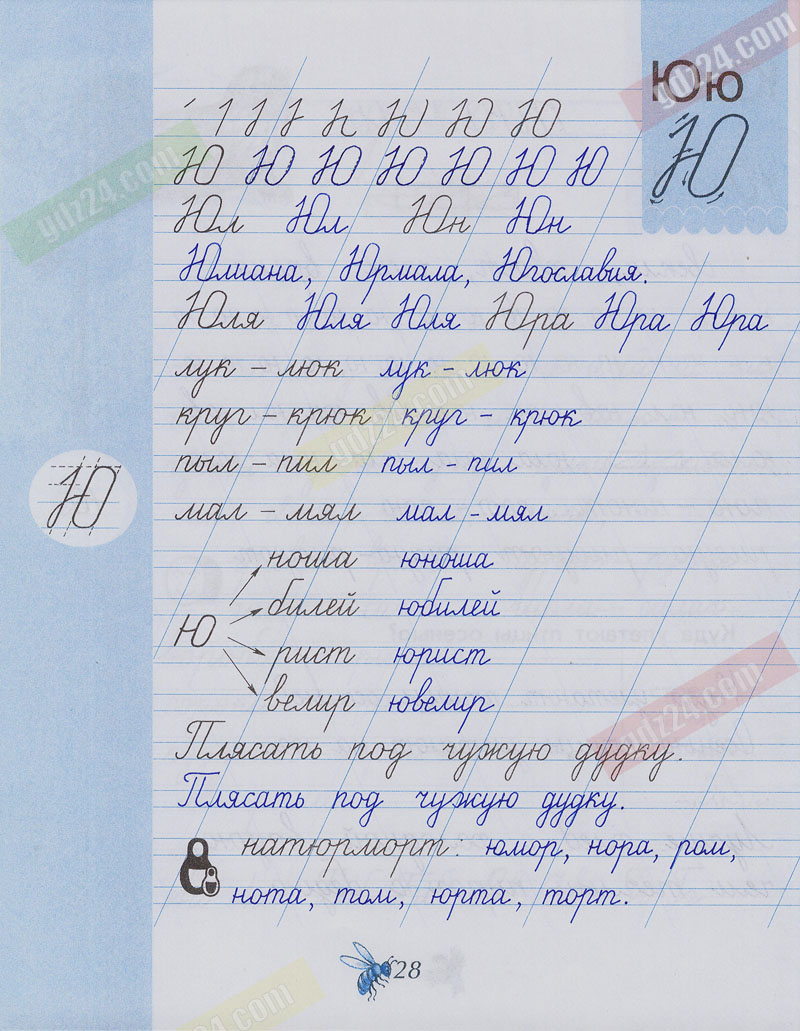 Юю
Ю
Ю Ю Ю
Ю Ю Ю Ю Ю Ю Ю
Юл Юл Юн Юн
Юлиана, Юрмала, Югославия.
Юля Юля Юля Юра Юра Юра
лук – люк лук – люк
круг – крюк круг – крюк
пыл – пил пыл – пил
Ю
мал – мял мал – мял
ноша юноша
билей юбилей
Ю
рист юрист
велир ювелир
Плясать под чужую дудку.
Плясать под чужую дудку.
натюрморт. юмор, нора, ром,
нота, том, юрта, торт.
28
gdz24.com
gdz24.com
gdz24.com
gdz24.com
gdz24.com